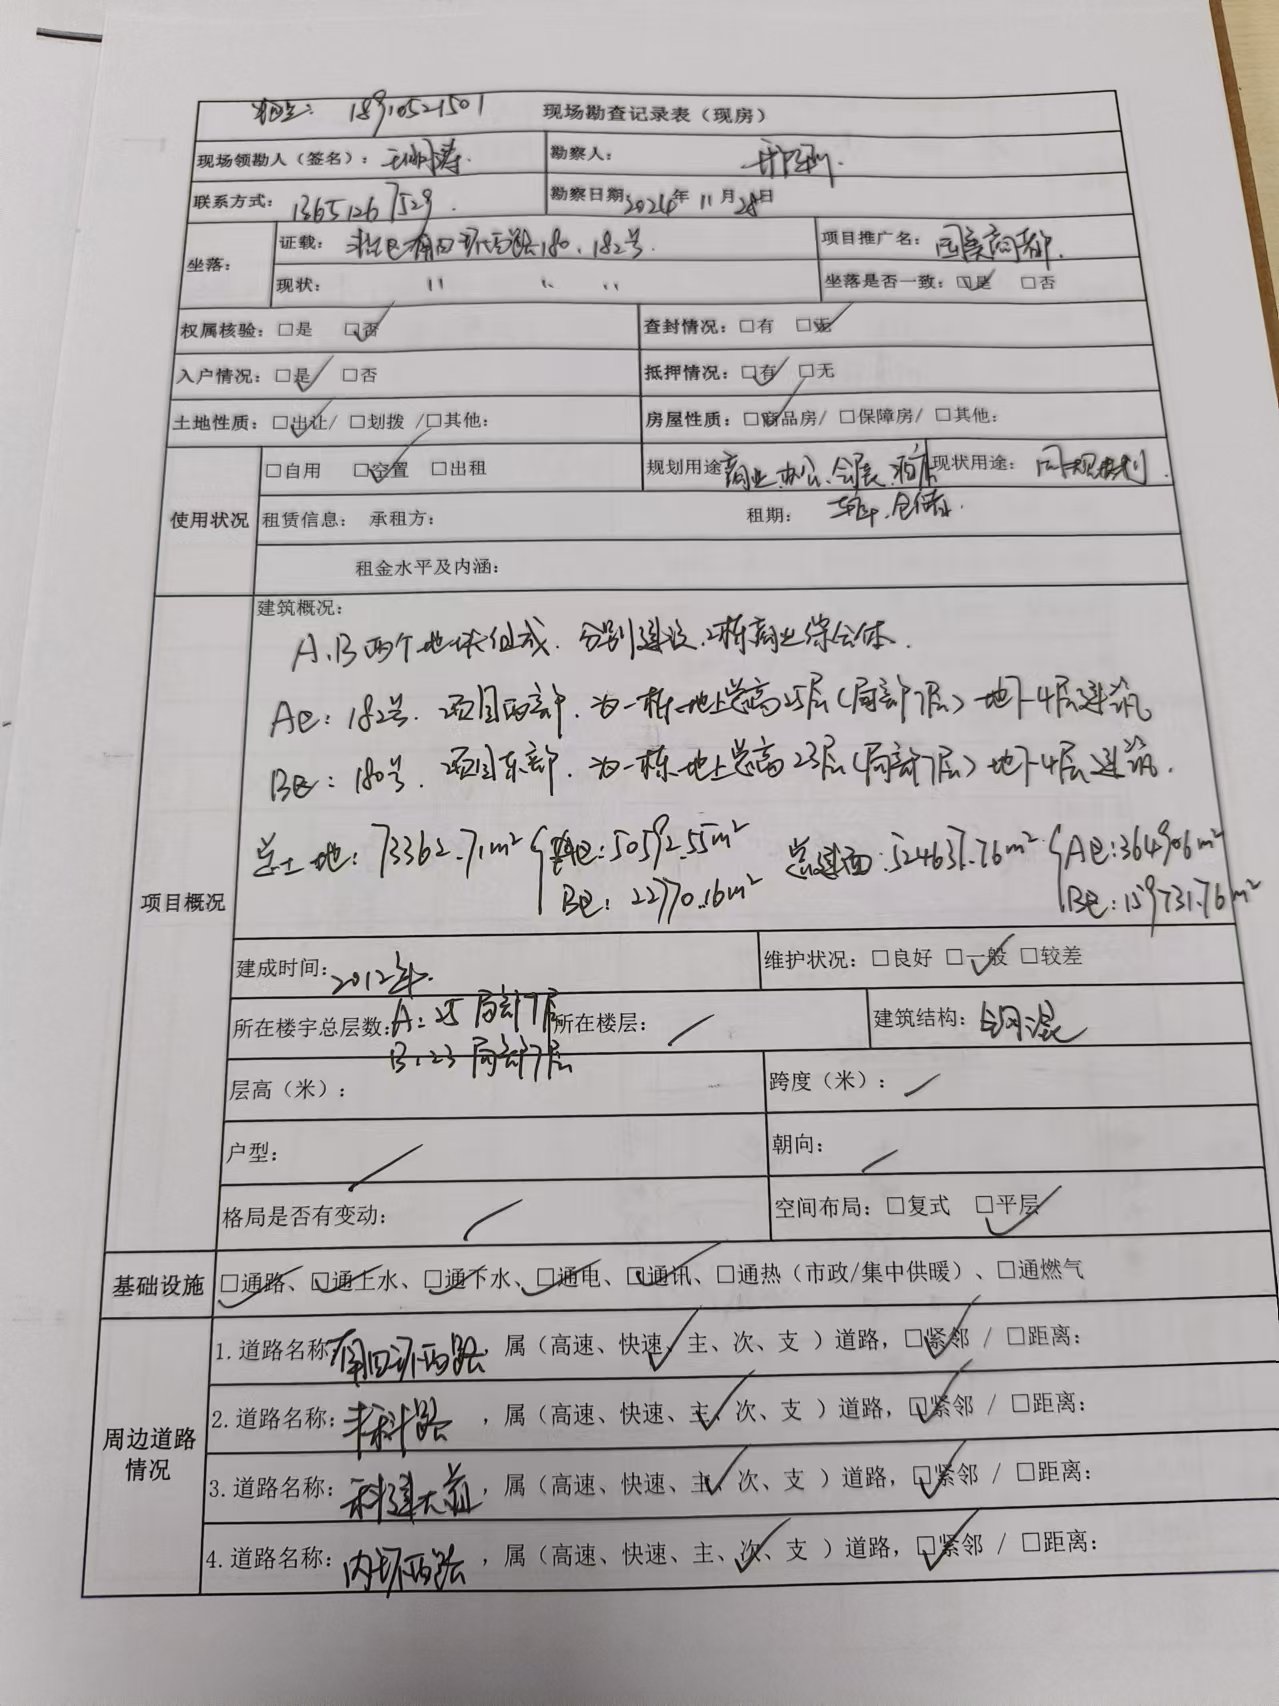 18910521501 现场勘查记录表（现房）
现场领勘人（签名）： 勘察人：
联系方式：13651267529. 勘察日期2024年11月28日
坐落： 证载：南四环西路180、182号. 项目推广名：
现状： 〃 〃 〃 坐落是否一致：☑是 □否
权属核验：□是 ☑否 查封情况：□有 ☑无
入户情况：☑是 □否 抵押情况：☑有 □无
土地性质：☑出让/ □划拨 /□其他： 房屋性质：☑商品房/ □保障房/ □其他：
使用状况 □自用 ☑空置 □出租 规划用途商业、办公、会展、酒店 现状用途：同规划.
车库、仓储.
租赁信息： 承租方： 租期：
租金水平及内涵：
项目概况 建筑概况：
A、B两个地块组成. 分别建设2栋商业综合体.
A区：182号. 项目西部. 为一栋地上总高25层（局部7层）地下4层建筑.
B区：180号. 项目东部. 为一栋地上总高23层（局部7层）地下4层建筑.
总土地：73362.71m² { A区：50592.55m² 总建面：524637.76m² { A区：364906m²
B区：22770.16m² B区：159731.76m²
建成时间：2012年. 维护状况：□良好 ☑一般 □较差
所在楼宇总层数：A：25 局部7层 所在楼层：/ 建筑结构：钢混
B：23 局部7层
层高（米）： 跨度（米）：/
户型：/ 朝向：/
格局是否有变动：/ 空间布局：□复式 ☑平层
基础设施 ☑通路、☑通上水、☑通下水、☑通电、☑通讯、□通热（市政/集中供暖）、□通燃气
周边道路情况 1.道路名称南四环西路，属（高速、快速✓、主、次、支 ）道路，☑紧邻 / □距离：
2.道路名称：丰科路，属（高速、快速、主✓、次、支 ）道路，☑紧邻 / □距离：
3.道路名称：，属（高速、快速、主✓、次、支 ）道路，☑紧邻 / □距离：
4.道路名称：内环西路，属（高速、快速、主、次✓、支 ）道路，☑紧邻 / □距离：